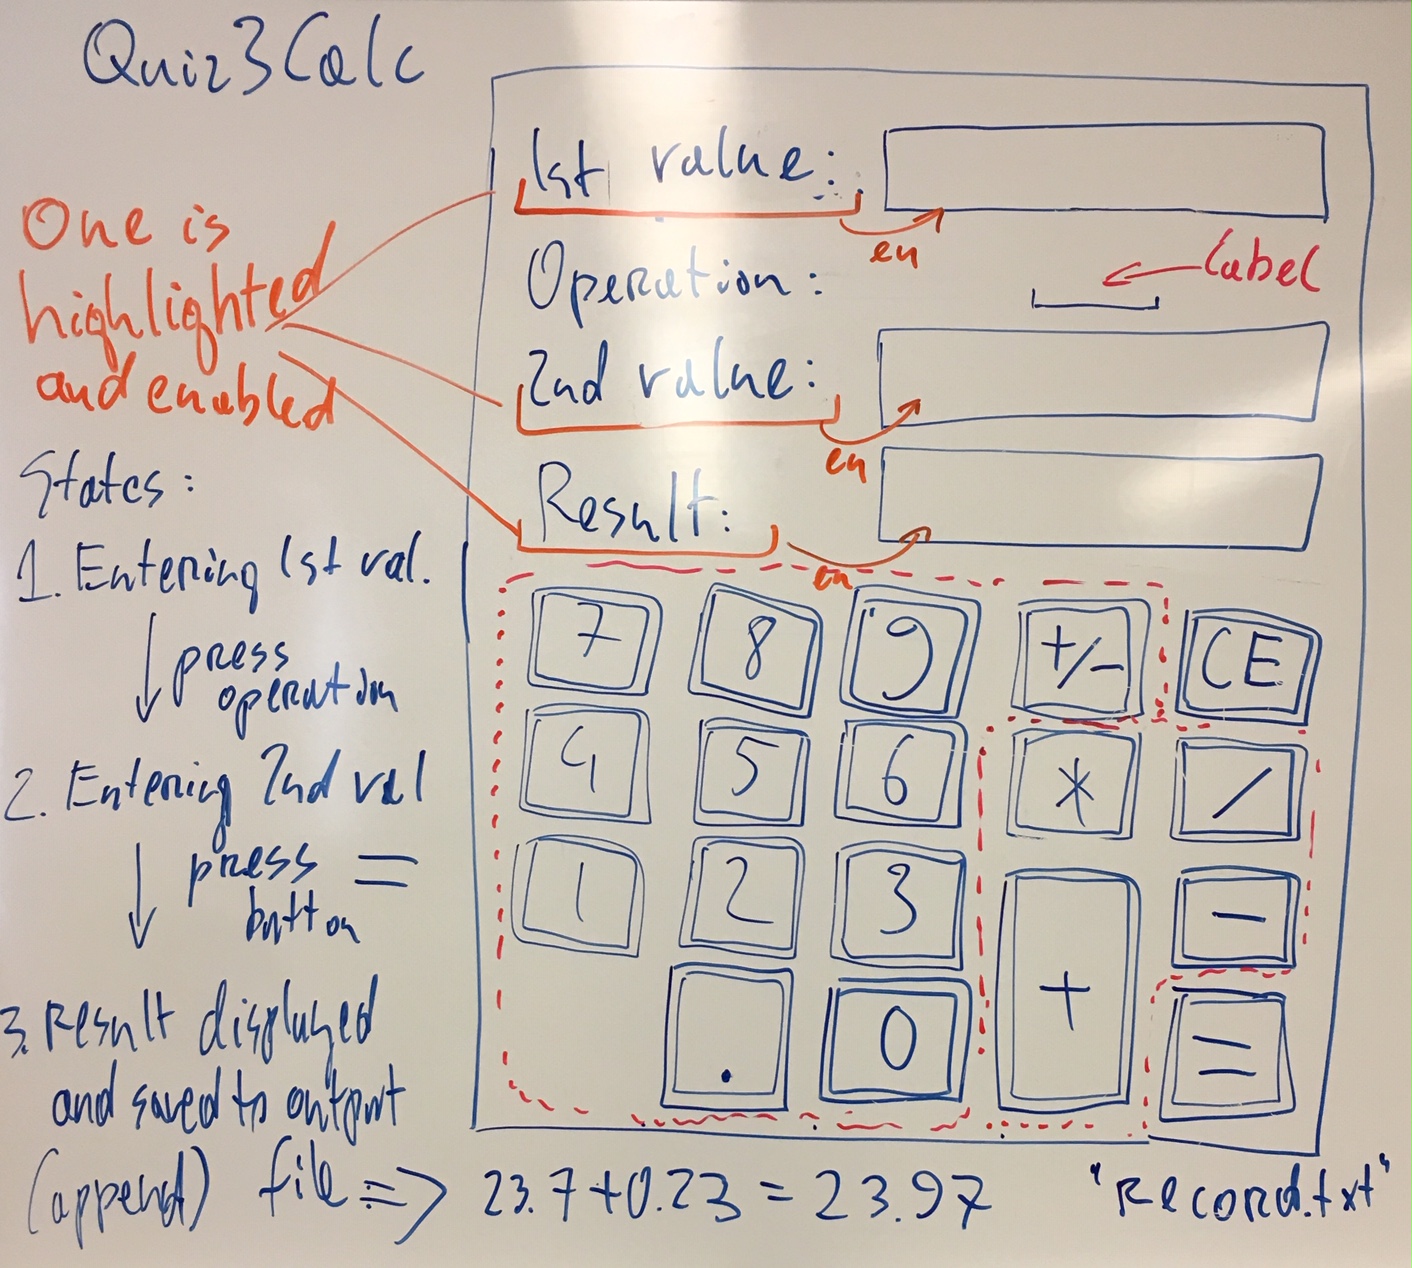 Quiz3Calc
One is
highlighted
and enabled
States:
1. Entering 1st val.
press
operation
2. Entering 2nd val
press =
button
3. Result displayed
and saved to output
(append) file => 23.7+0.23 = 23.97 "Record.txt"
1st value:
en
Operation:
label
2nd value:
en
Result:
en
7 8 9 +/- CE
4 5 6 * /
1 2 3 + -
. 0 =